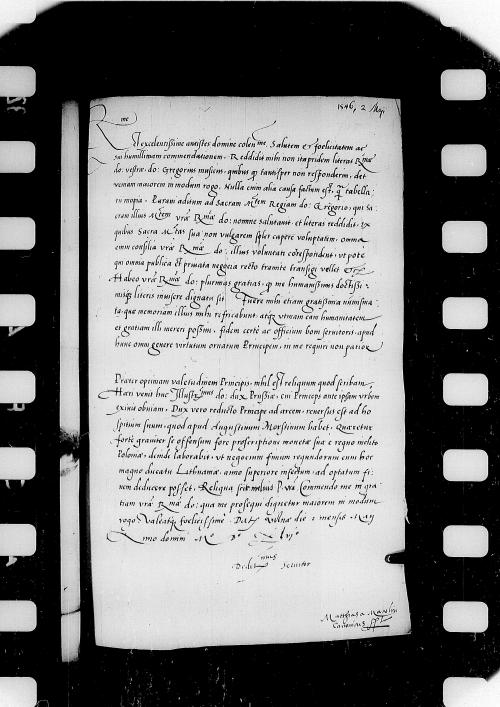 1546, 2 Maij
R me
et excellentissime antistes domine colen me. Salutem et foelicitatem ac
sui humillimam commendationem. Reddidit mihi non ita pridem literas Rmae
do: vestrae, do: Gregorius musicus, quibus qd tantisper non responderim, det
veniam maiorem in modum rogo. Nulla enim alia causa factum est, qz tabella
ru inopia. Paravi aditum ad Sacram Mtem Regiam do: Gregorio, qui Sa
cram illius Mtem vrae Rmae do: nomine salutavit, et literas reddidit. Ex
quibus Sacra Mtas sua non vulgarem capere voluptatem, omnia
enim consilia vrae Rmae do: illius voluntati correspondent, ut pote
qui omnia publica et privata negocia recto tramite transigi vellet
Habeo vrae Rmae do: plurimas gratias, qd me humanissimis doctissi-
misqz literis invisere dignata sit. Fuere mihi etiam gratissima numisma-
ta, quae memoriam illius mihi refricabunt, atqz utinam eam humanitatem
et gratiam illi mereri possim, fidem certe ac officium boni servitoris, apud
hunc omni genere virtutum ornatum Principem, in me requiri non patior
Praeter optimam valetudinem Principis, nihil est reliquum quod scribam
Heri venit huc Illustrimus do: dux Prussiae, cui Princeps ante ipsam urbem
exivit obviam. Dux vero reducto Principe ad arcem, reversus est ad ho
spitium suum, quod apud Augustinum Morstinum habet. Quaeretur
forte graviter se offensum fore proscriptione monetae suae e regno inclito
Poloniae, deinde laborabit, ut negocium finium regundorum cum hoc
magno ducatu Lithuaniae, anno superiore infectum, ad optatum fi-
nem deducere posset. Reliqua P. vra Commendo me in gra-
tiam vrae Rmae do: qua me prosequi dignetur maiorem in modum
rogo. Valeatqz foelicissime. Dat Vilnae die 2 mensis Maij
Anno domini Mo Do XLVIo
Deditimus Servitor
Matthias a
Canonicus